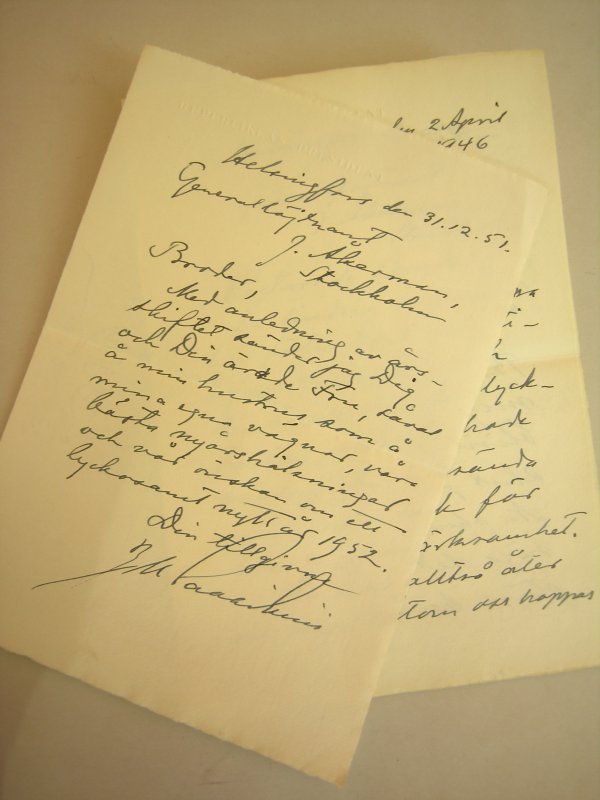 Helsingfors den 31.12.51.
Generallöjtnant
J. Åkerman,
Stockholm
Broder,
Med anledning av års-
skiftet sänder jag Dig
och Din ärade Fru, såväl
å min hustrus som å
mina egna vägnar, våra
bästa nyårshälsningar
och vår önskan om ett
lyckosamt nytt år 1952.
Din tillgivne
den 2 April
1946
lyck-
hade
sända
för
alltså åter
oss hoppas